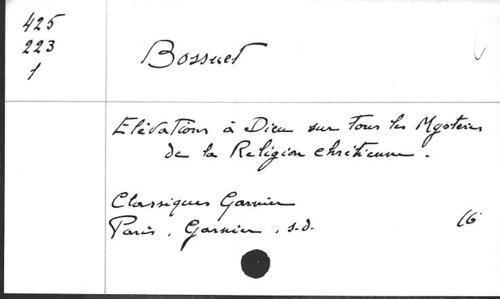 425
223
1
Bossuet
Elévations à Dieu sur tous les Mystères
de la Religion chrétienne.
Classiques Garnier
Paris, Garnier, s.d.
16